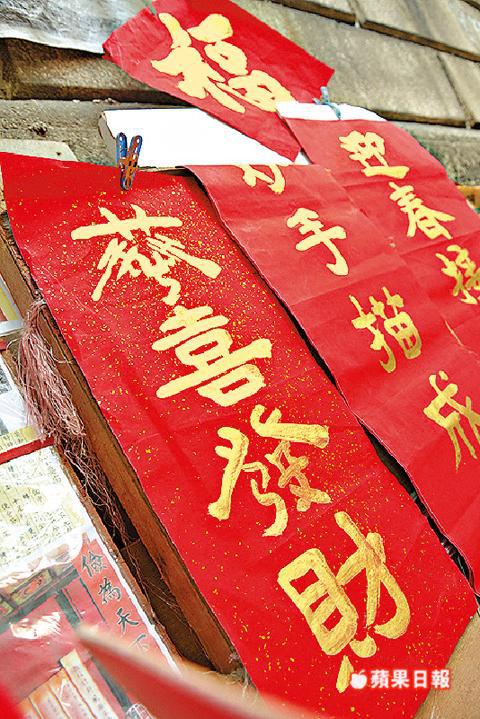 福
恭喜發財
手描成
迎春接
儉為天
蘋果日報